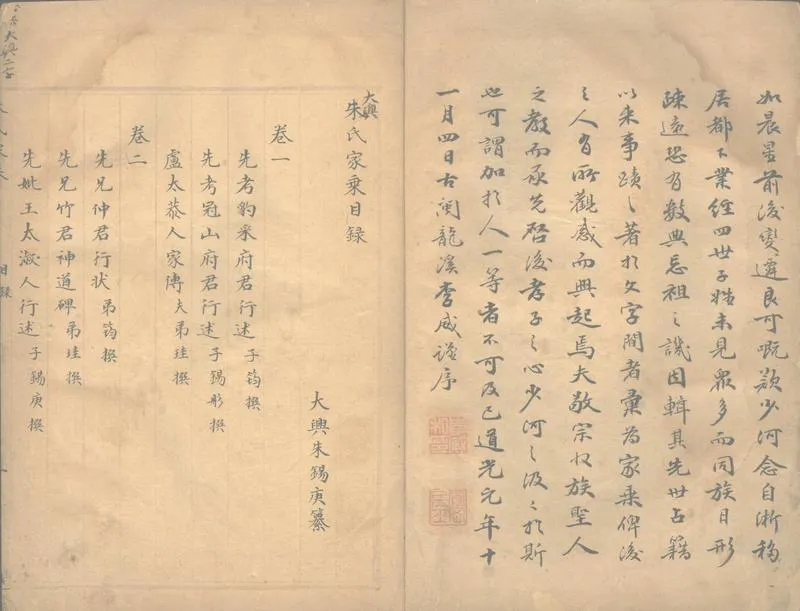 如晨星前後變遷良可嘅歎少河念自浙移
居都下業經四世子姓未見眾多而同族日形
疎遠恐有數典忘祖之譏因輯其先世占籍
以来事蹟之著於文字間者彙為家乘俾後
之人有所觀感而興起焉夫敬宗收族聖人
之教而承先啓後孝子之心少河之汲々於斯
也可謂加於人一等者不可及已道光元年十
一月四日古閩龍溪李威謹序
大興
朱氏家乘目録
大興朱錫庚纂
卷一
先考豹采府君行述子筠撰
先考冠山府君行述子錫彤撰
盧太恭人家傳夫弟珪撰
卷二
先兄仲君行状弟筠撰
先兄竹君神道碑弟珪撰
先妣王太淑人行述子錫庚撰
大興二字
目録